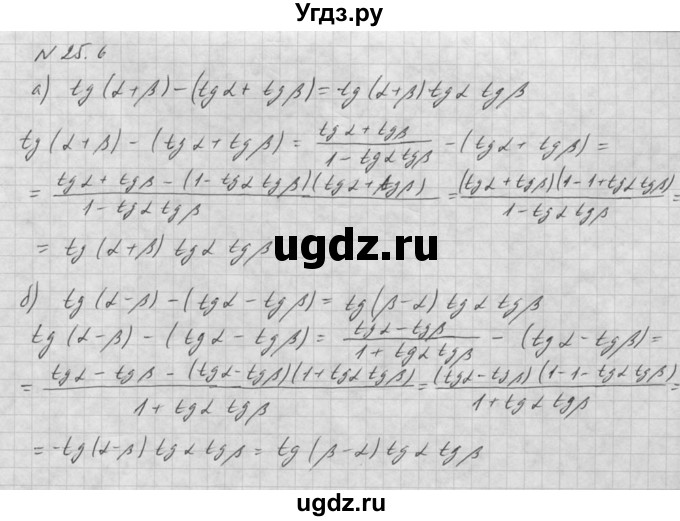 Угдз.ру
N 25.6
а) tg(α+β)-(tgα+tgβ)=tg(α+β)tgα tgβ
tg(α+β)-(tgα+tgβ)= (tgα+tgβ)/(1-tgα tgβ) -(tgα+tgβ)=
= (tgα+tgβ-(1-tgα tgβ)(tgα+tgβ))/(1-tgα tgβ) = ((tgα+tgβ)(1-1+tgα tgβ))/(1-tgα tgβ) =
= tg(α+β) tgα tgβ
ugdz.ru
б) tg(α-β)-(tgα-tgβ)=tg(β-α)tgα tgβ
tg(α-β)-(tgα-tgβ)= (tgα-tgβ)/(1+tgα tgβ) -(tgα-tgβ)=
= (tgα-tgβ-(tgα-tgβ)(1+tgα tgβ))/(1+tgα tgβ) = ((tgα-tgβ)(1-1-tgα tgβ))/(1+tgα tgβ) =
=-tg(α-β) tgα tgβ= tg(β-α)tgα tgβ
ugdz.ru